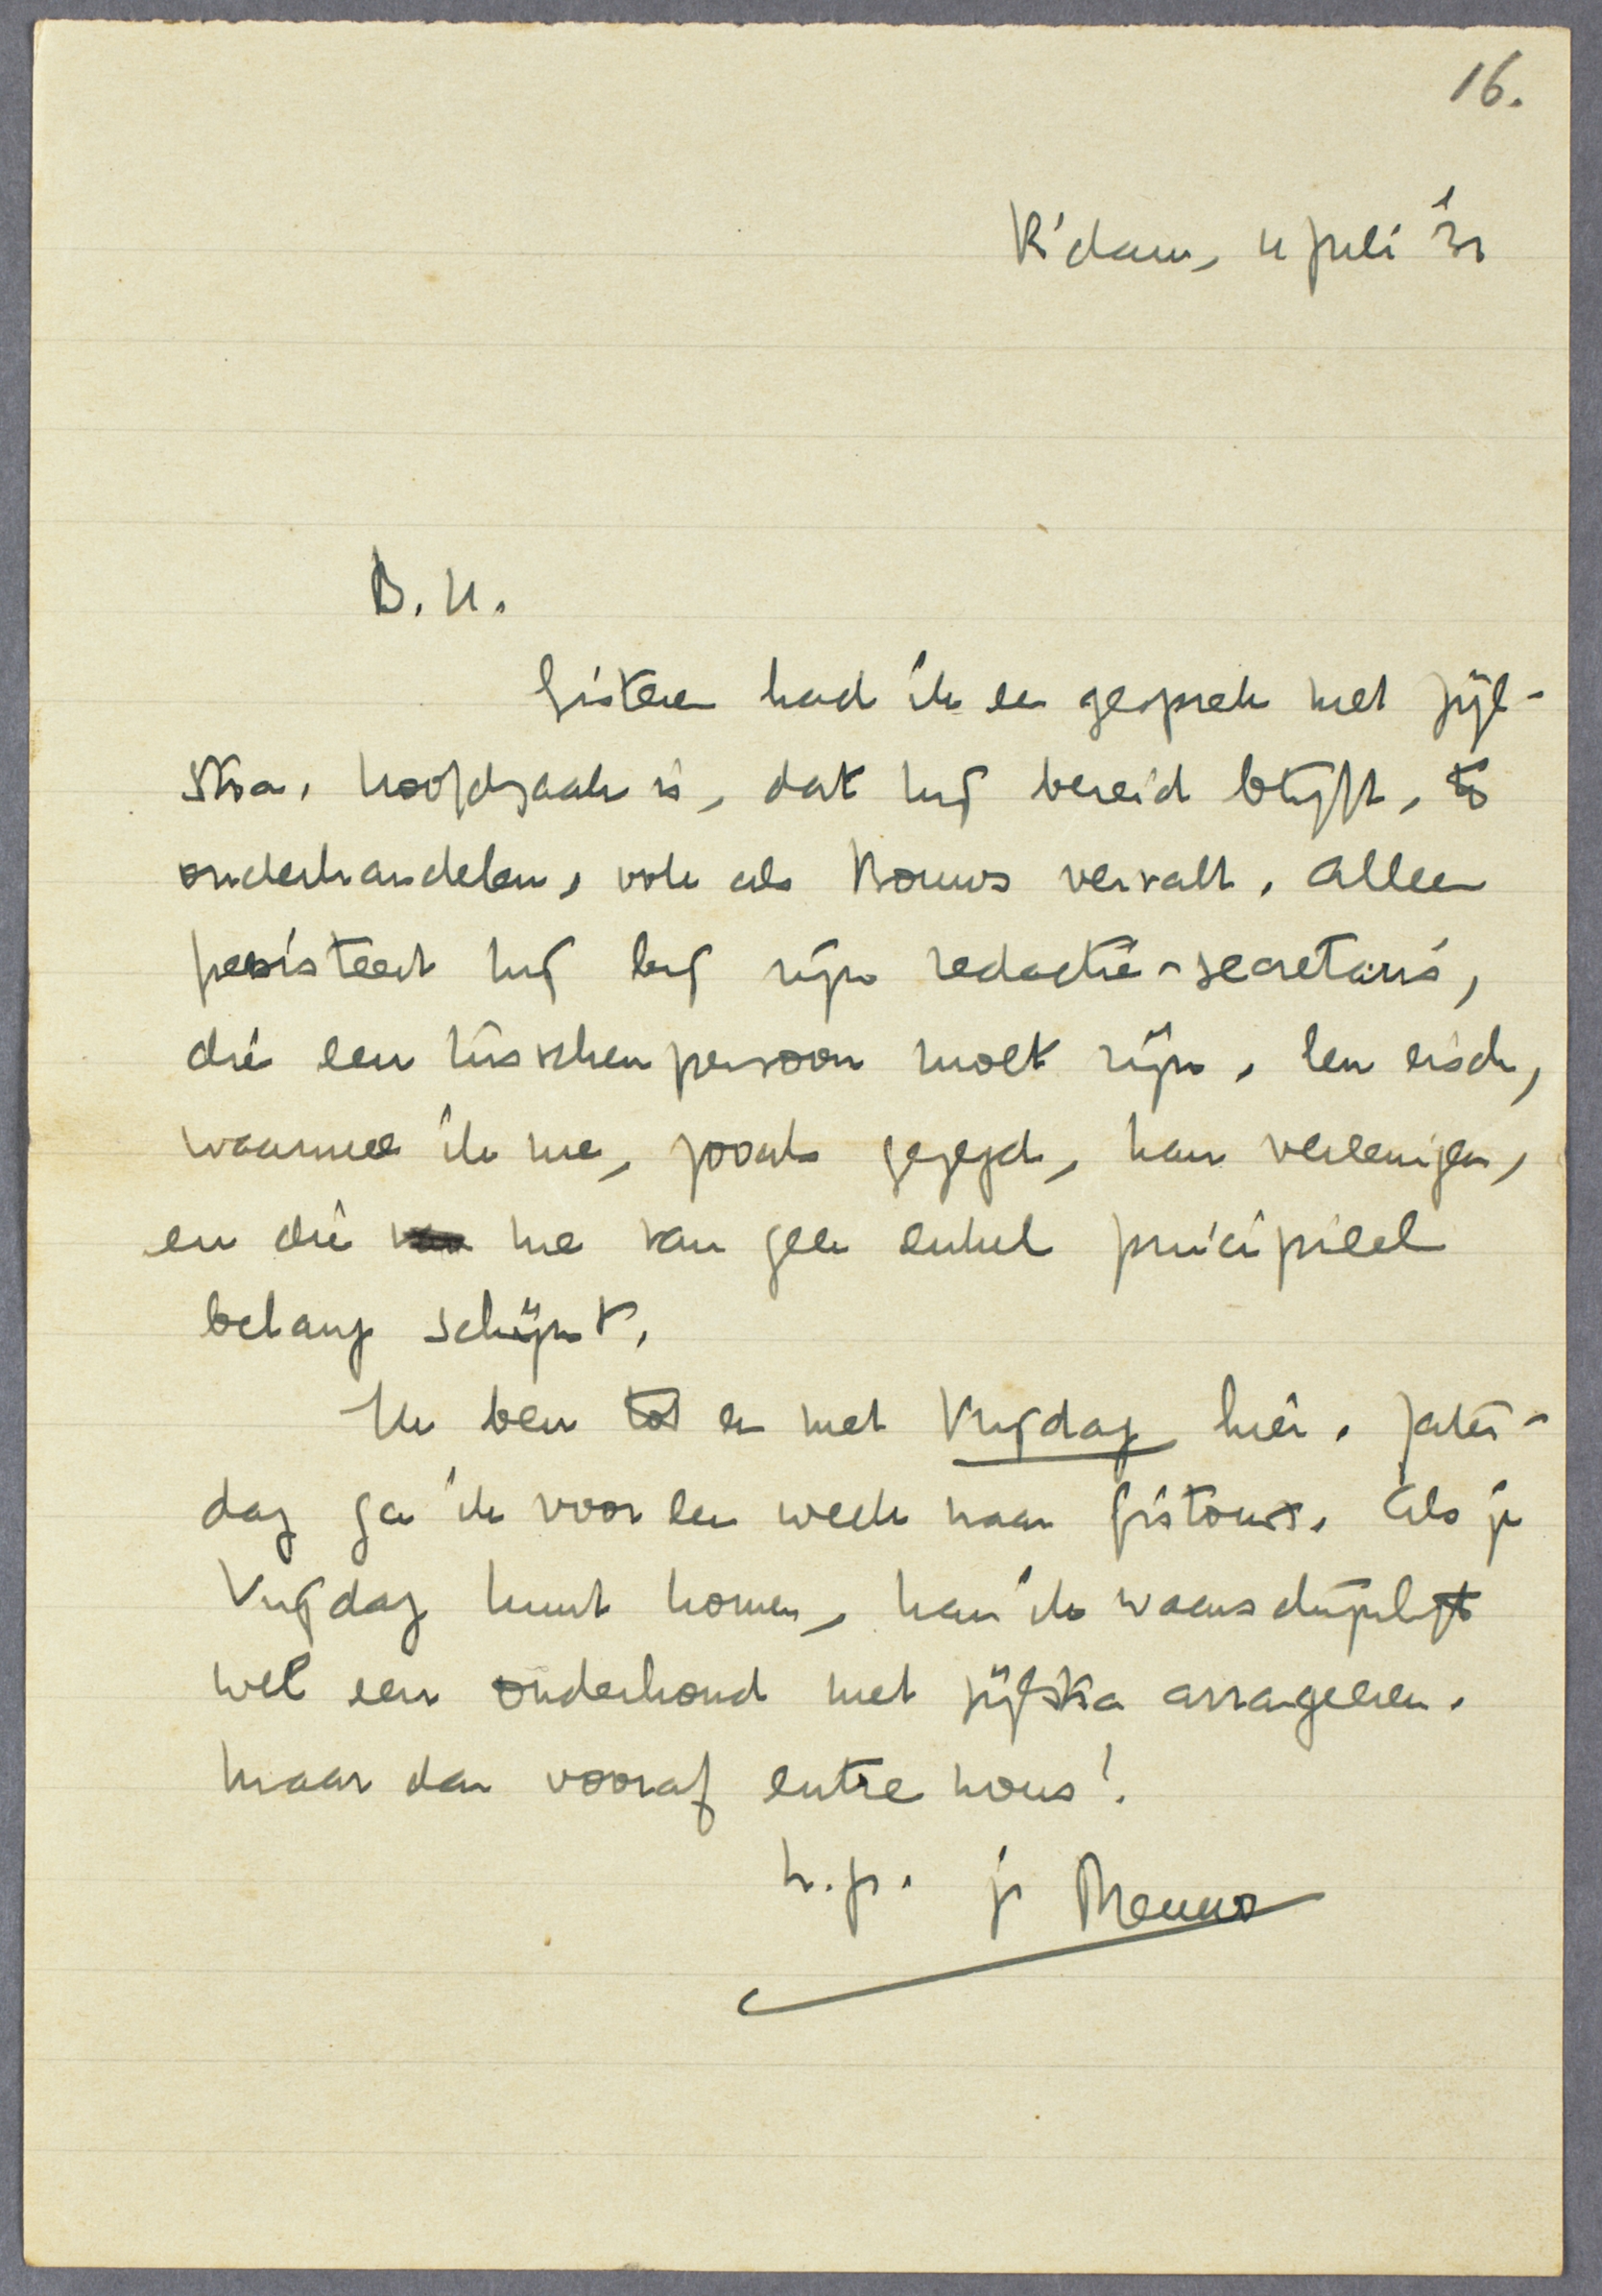 16.
R'dam, 11 Juli '31
B. M.
Gisteren had ik een gesprek met Zijl-
stra. Hoofdzaak is, dat hij bereid blijft, te
onderhandelen, ook als Bouws vervalt. Alleen
persisteert hij bij zijn redactie-secretaris,
die een tusschenpersoon moet zijn. Een eisch,
waarmee ik me, zooals gezegd, kan vereenigen,
en die me van geen enkel principieel
belang schijnt.
Ik ben tot en met Vrijdag hier. Zater-
dag ga ik voor een week naar Gistoux. Als je
Vrijdag kunt komen, kan ik waarschijnlijk
wel een onderhoud met Zijlstra arrangeeren.
Maar dan vooraf entre nous!
h.gr. je Menno